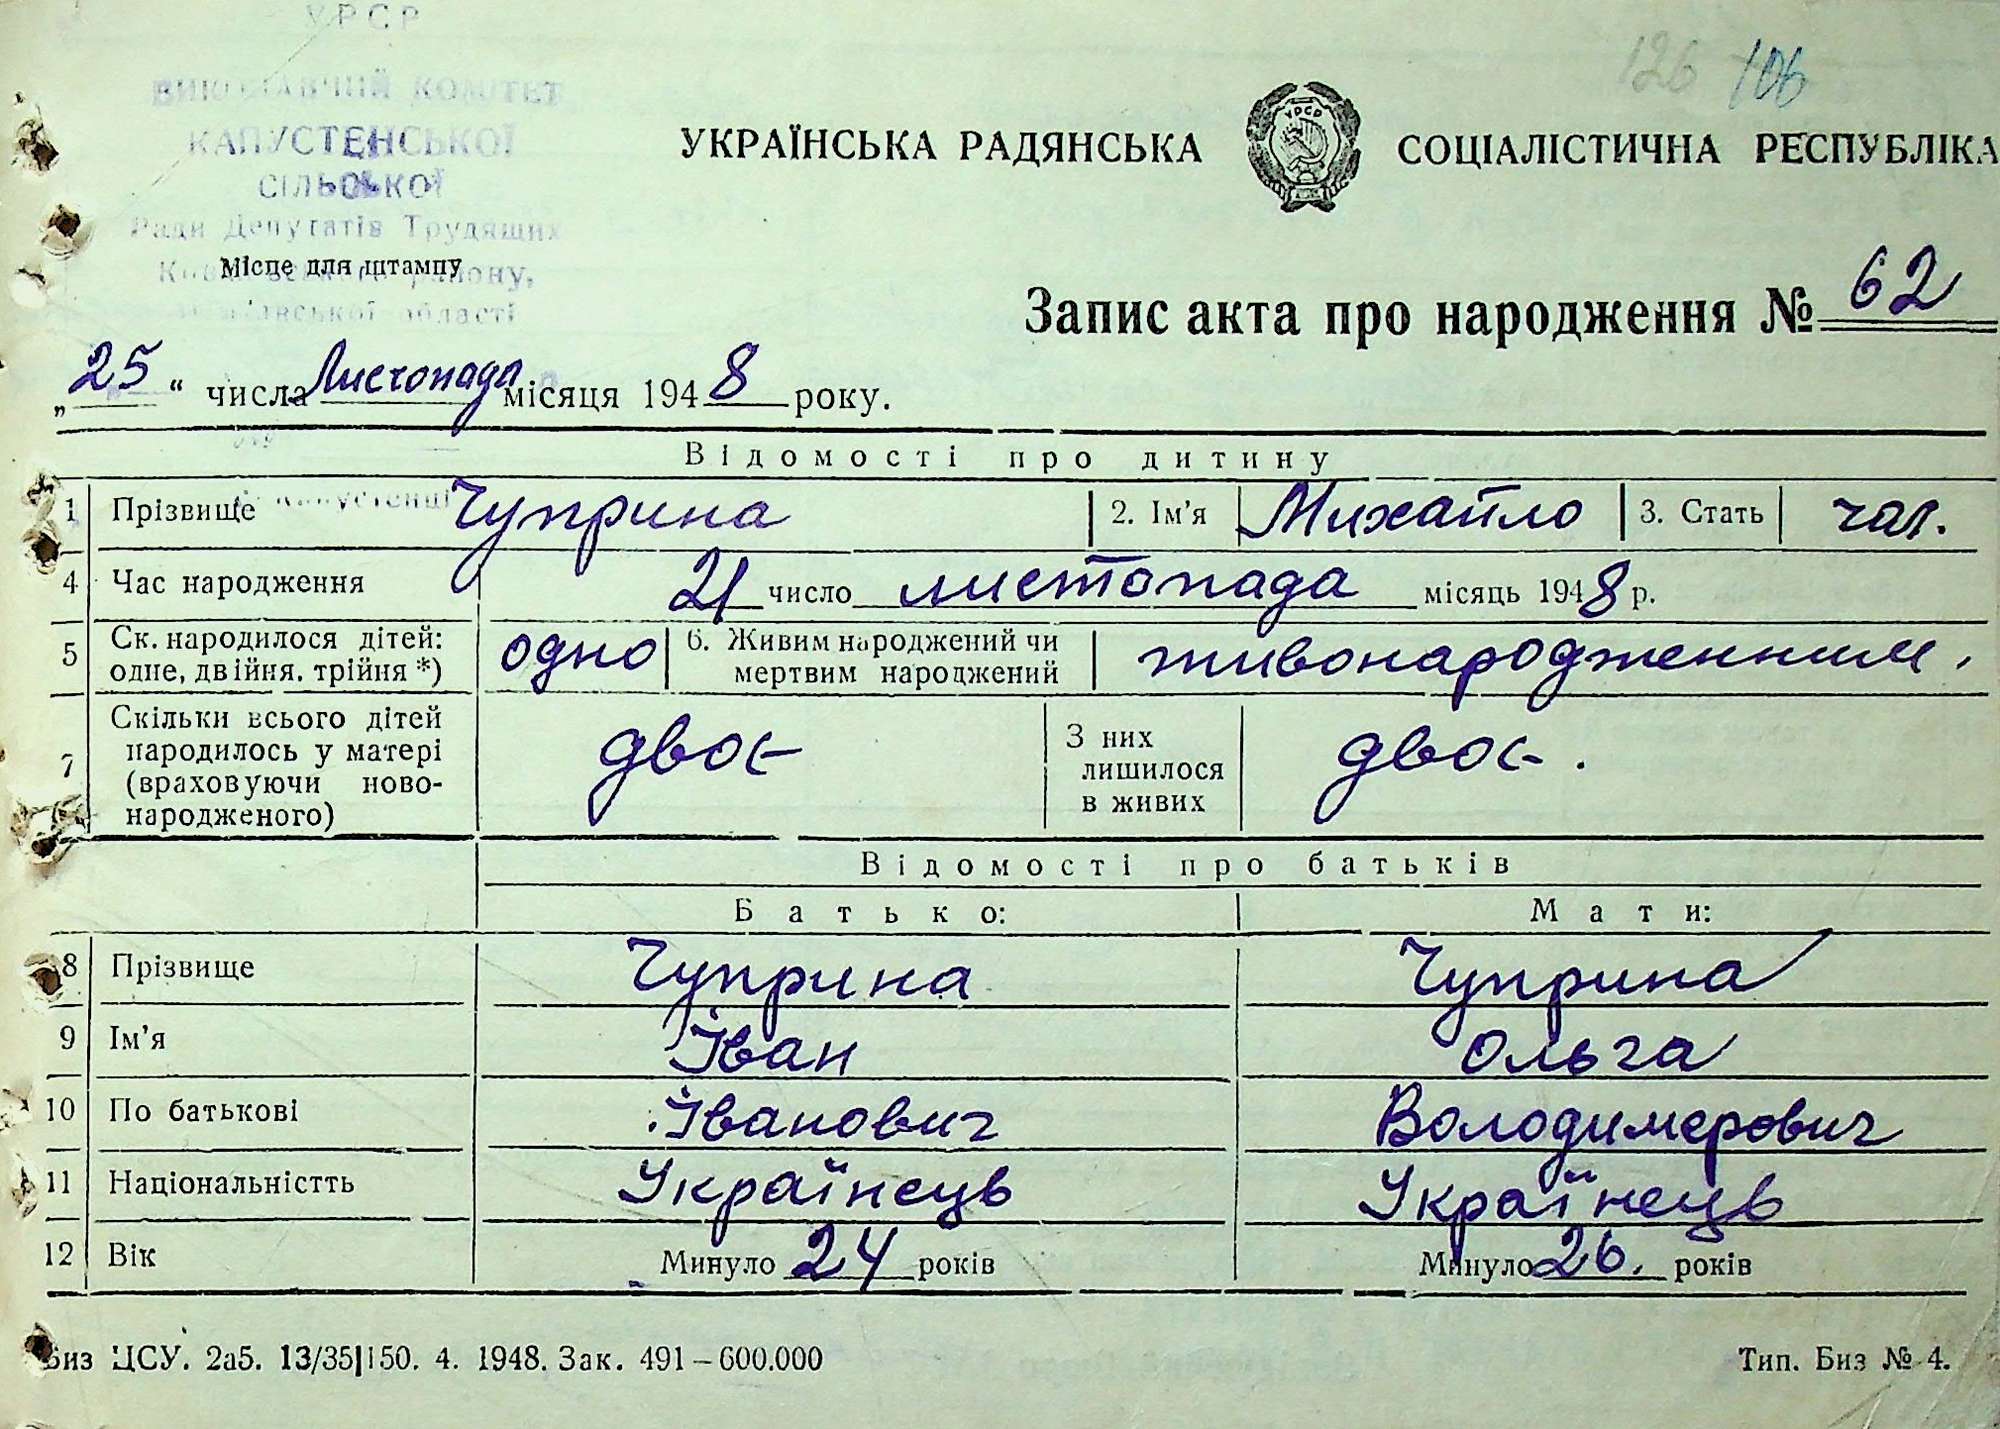 УРСР
ВИКОНАВЧИЙ КОМІТЕТ
КАПУСТЕНСЬКОЇ
СІЛЬСЬКОЇ
Ради Депутатів Трудящих
району,
області
Місце для штампу
126 106
УКРАЇНСЬКА РАДЯНСЬКА СОЦІАЛІСТИЧНА РЕСПУБЛІКА
УРСР
Запис акта про народження № 62
„25“ числа Листопада місяця 1948 року.
Відомості про дитину
1 Прізвище Чуприна 2. Ім'я Михайло 3. Стать чол.
4 Час народження 21 число листопада місяць 1948 р.
5 Ск. народилося дітей: одне, двійня, трійня *) одно 6. Живим народжений чи мертвим народжений живонародженним.
7 Скільки всього дітей народилось у матері (враховуючи ново-народженого) двоє З них лишилося в живих двоє.
Відомості про батьків
Батько: Мати:
8 Прізвище Чуприна Чуприна
9 Ім'я Іван Ольга
10 По батькові Іванович Володимерович
11 Національністть Українець Українець
12 Вік Минуло 24 років Минуло 26. років
Биз ЦСУ. 2а5. 13/35|150. 4. 1948. Зак. 491–600.000 Тип. Биз № 4.